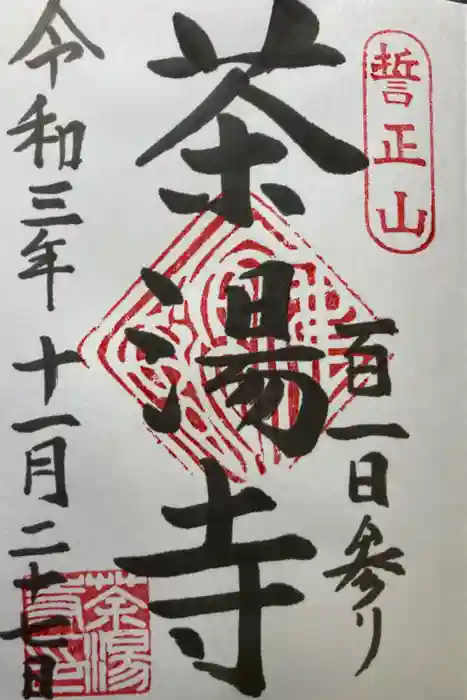 誓正山
百一日参り
茶湯寺
令和三年十一月二十七日
茶湯
寺印